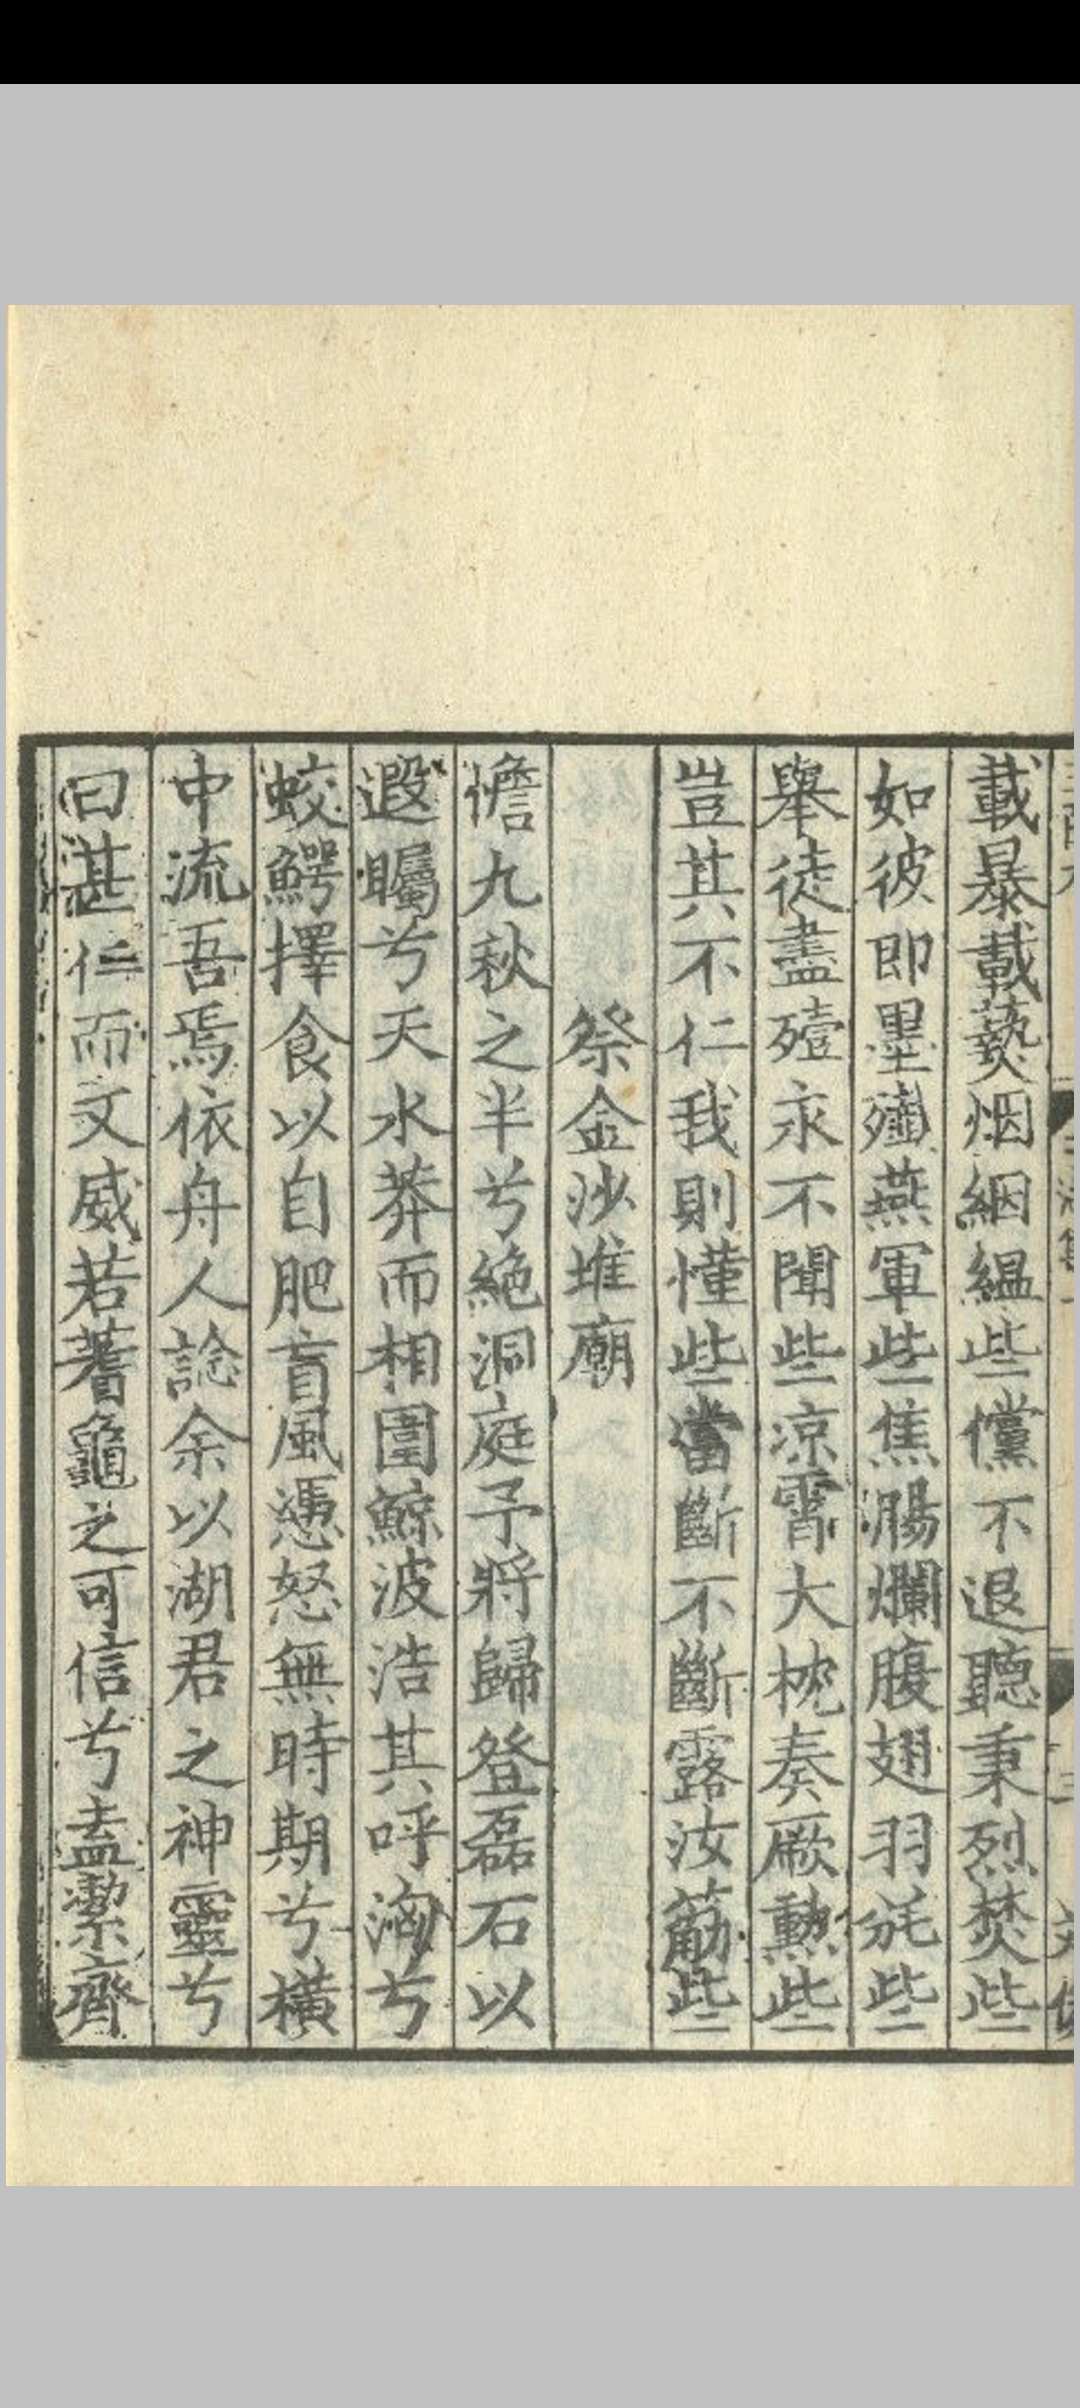 載暴載爇烟絪緼些儻不退聽秉烈焚些
如彼即墨殲燕軍些焦膓爛腹翅羽毿些
舉徒盡殪永不聞些凉霄大枕奏厥勲些
豈其不仁我則慬些當斷不斷露汝筋些
祭金沙堆廟
憺九秋之半兮絶洞庭予將歸登磊石以
遐矚兮天水莽而相圍鯨波浩其呼洶兮
蛟鰐擇食以自肥盲風慿怒無時期兮橫
中流吾焉依舟人諗余以湖君之神靈兮
曰甚仁而文威若蓍龜之可信兮盍潔齊